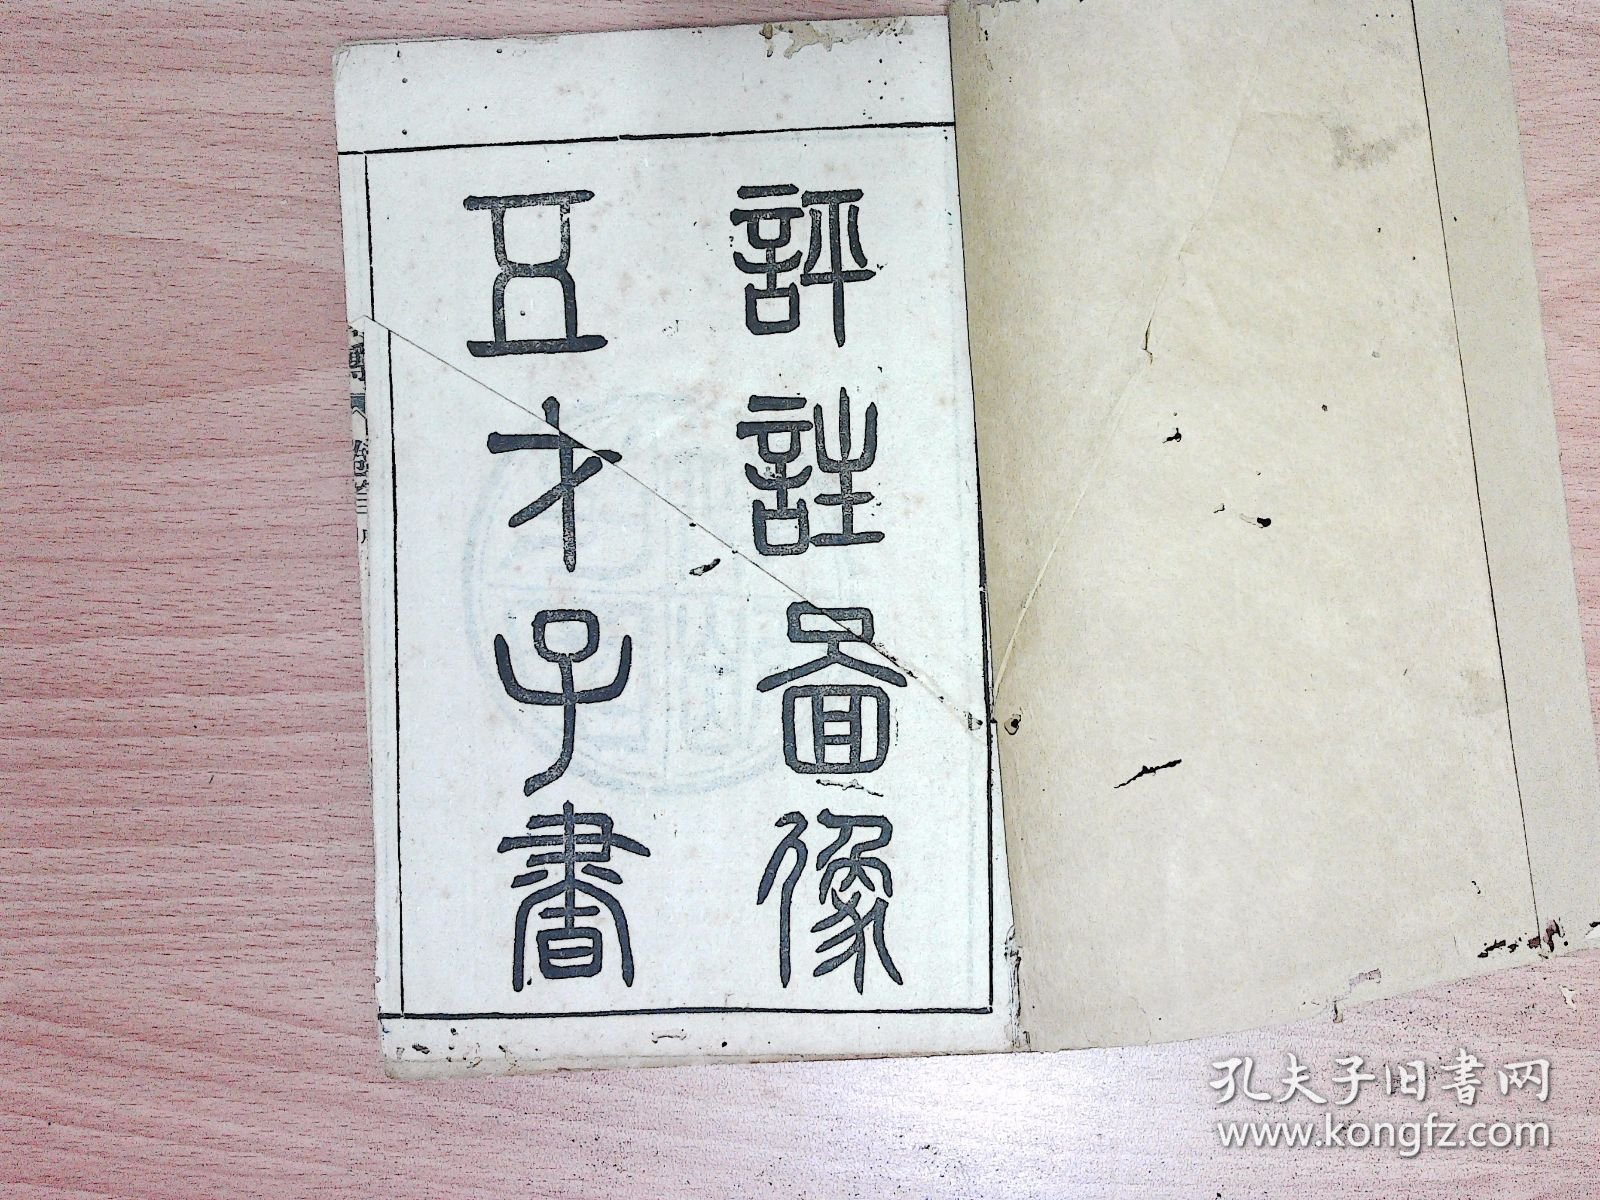 評註圖像
五才子書
孔夫子旧书网
www.kongfz.com